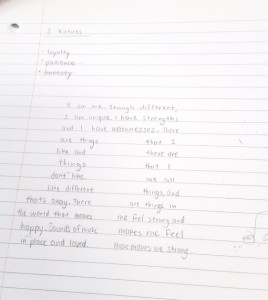 3 Values
· loyalty
· patience
· honesty
I am me. Enough different,
I am unique. I have strengths
and I have weaknesses. There
are things that I
like and there are
things that I
don't like. we all
like different things and
thats okay. There are things in
the world that makes me feel strong and
happy. Sounds of music makes me feel
in place and loved. makes me strong